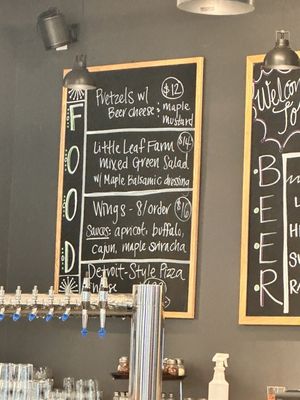 FOOD
Pretzels w/ $12
Beer cheese & maple
mustard
Little Leaf Farm $14
mixed Green Salad
w/ Maple Balsamic dressing
Wings - 8/order $16
Sauces: apricot, buffalo,
cajun, maple sriracha
Detroit-Style Pizza
Welcome
BEER